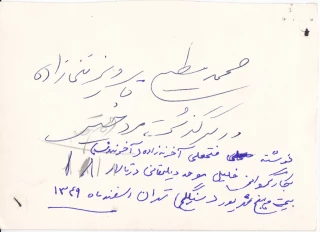 محمد مطیع
پرویز تقی‌زاده
در سرگذشت مرد خسیس
نوشته فتحعلی آخوندزاده (آخوندف)
بکارگردانی خلیل موحد دیلمقانی در تالار
بیست و پنج شهریور (سنگلج) تهران اسفند ماه ۱۳۴۹